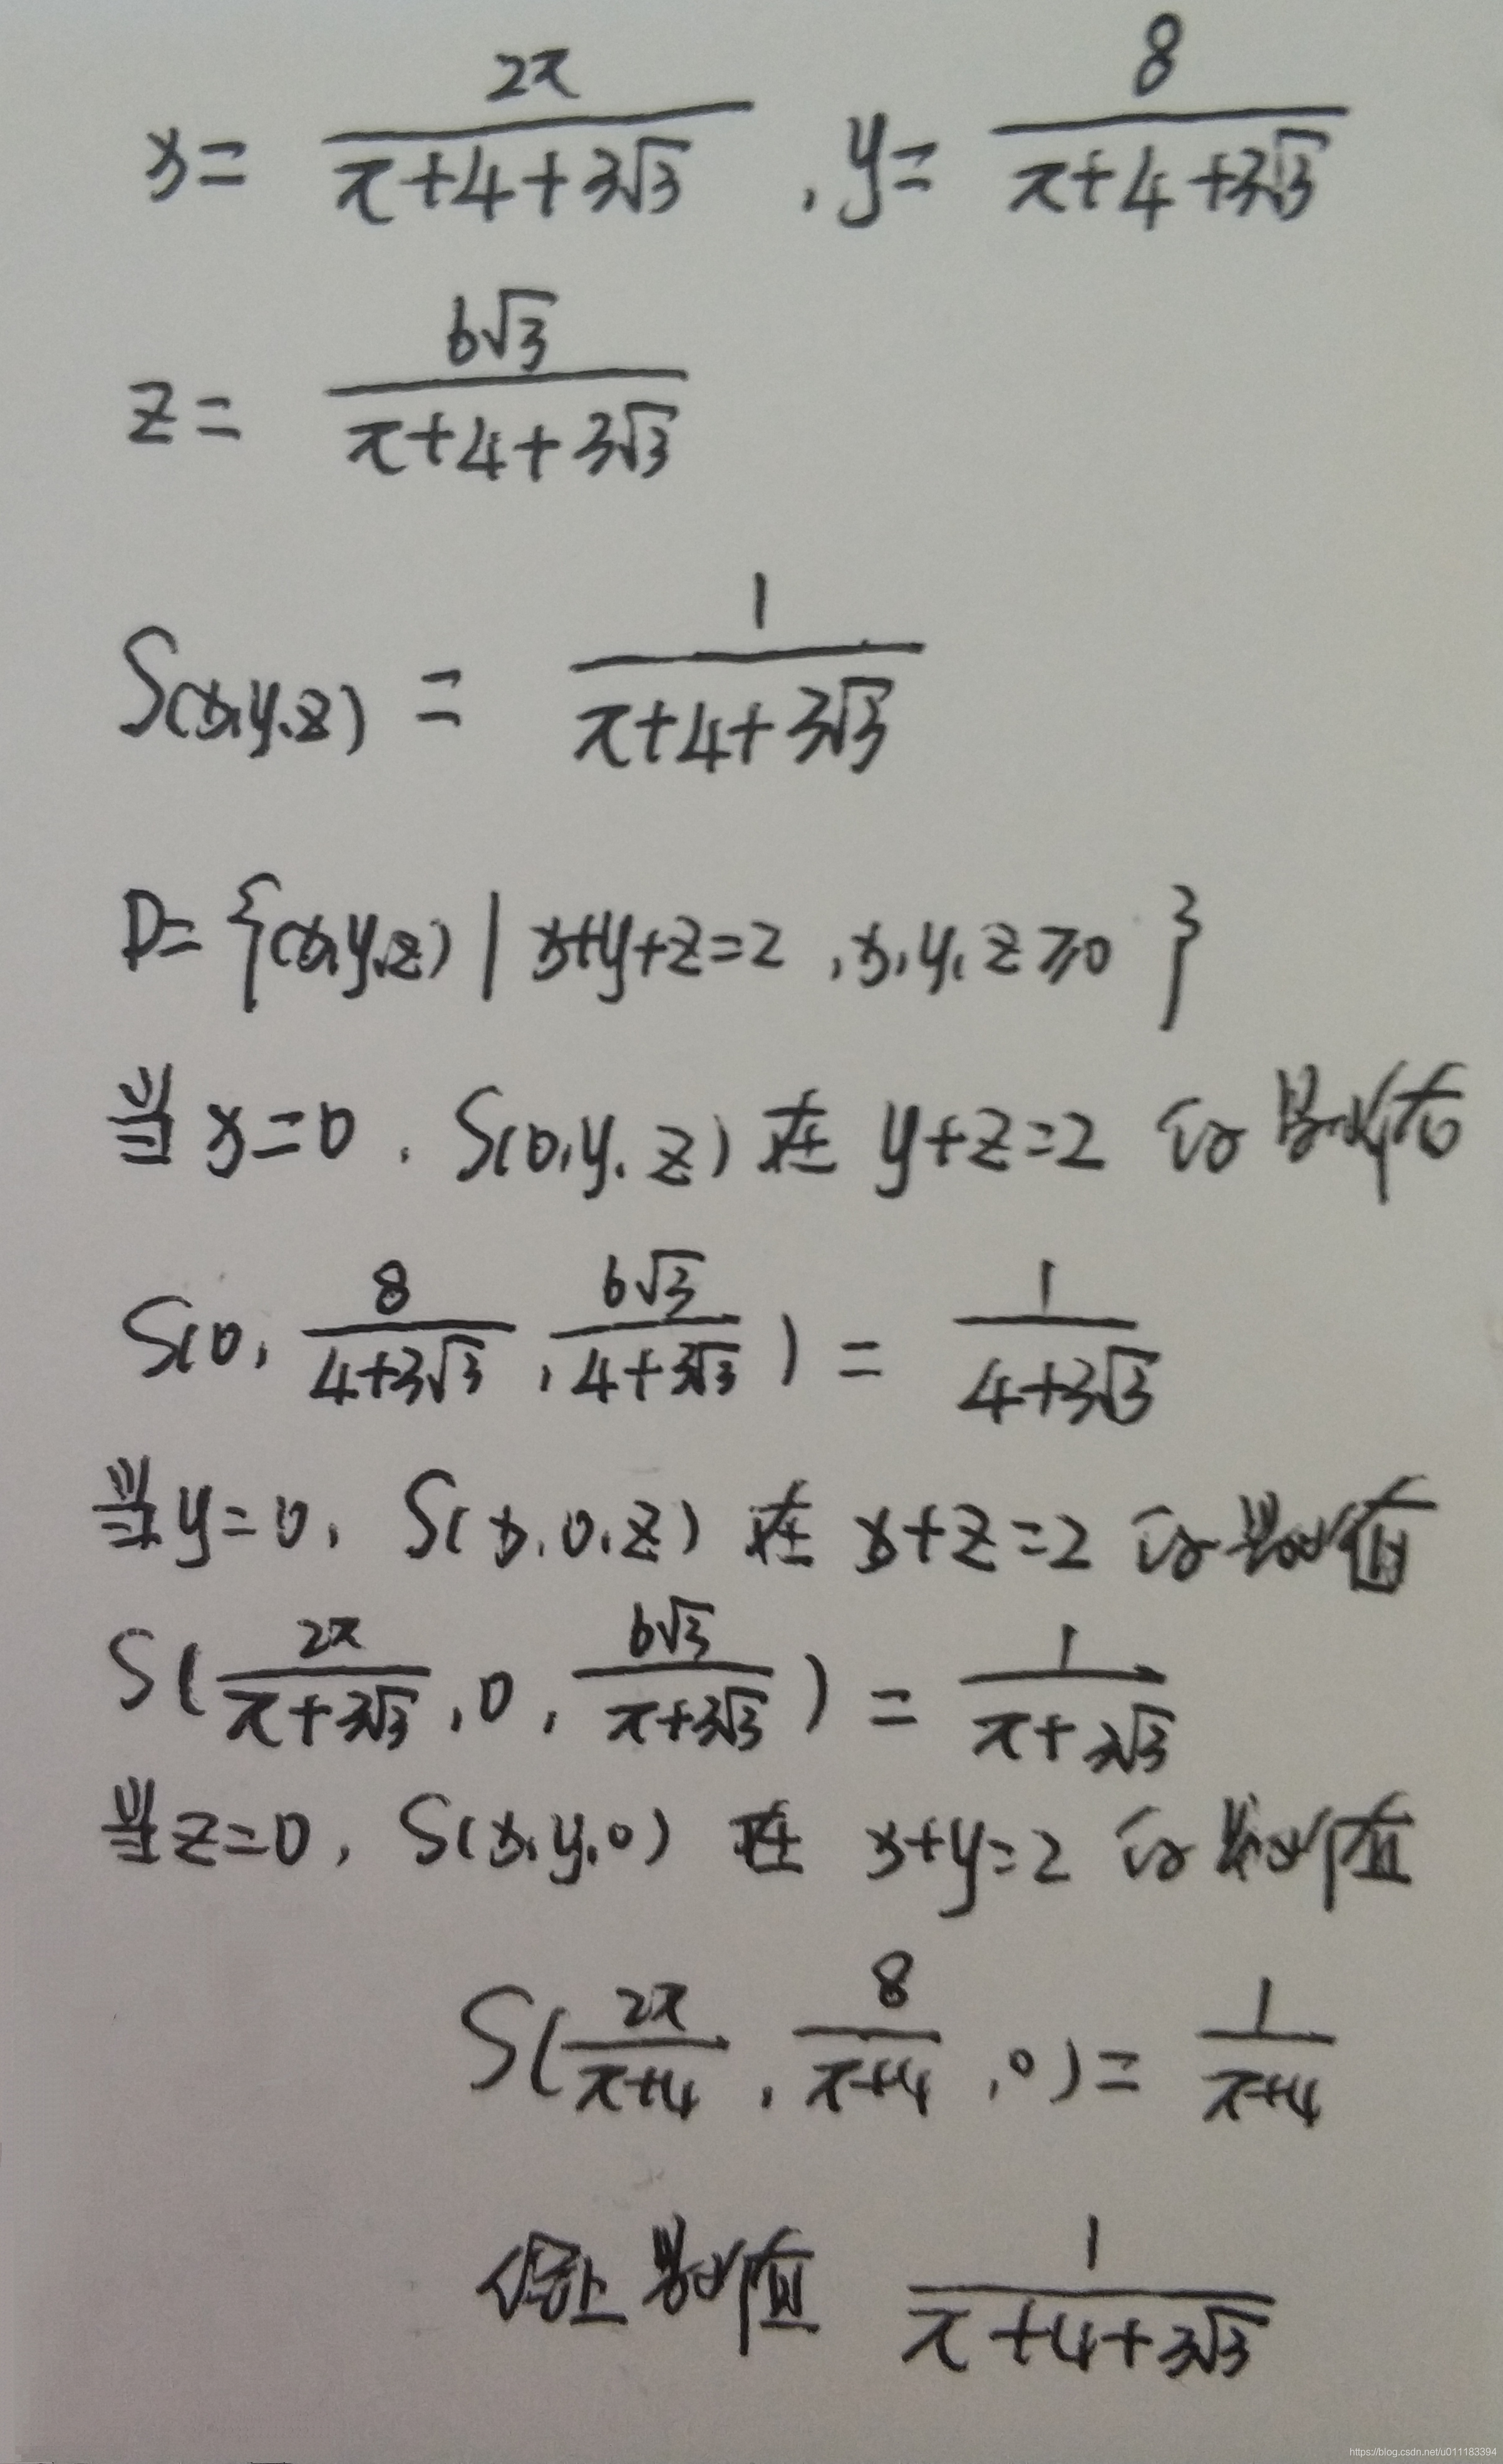 x = 2π/(π+4+3√3) , y = 8/(π+4+3√3)
z = 6√3/(π+4+3√3)
S(x,y,z) = 1/(π+4+3√3)
D = {(x,y,z) | x+y+z=2 , x,y,z ⩾0 }
当 x=0 , S(0,y,z) 在 y+z=2 的最小值
S(0, 8/(4+3√3) , 6√3/(4+3√3) ) = 1/(4+3√3)
当 y=0, S(x,0,z) 在 x+z=2 的最小值
S( 2π/(π+3√3) , 0 , 6√3/(π+3√3) ) = 1/(π+3√3)
当 z=0, S(x,y,0) 在 x+y=2 的最小值
S( 2π/(π+4) , 8/(π+4) , 0 ) = 1/(π+4)
综上 最小值 1/(π+4+3√3)
https://blog.csdn.net/u011183394